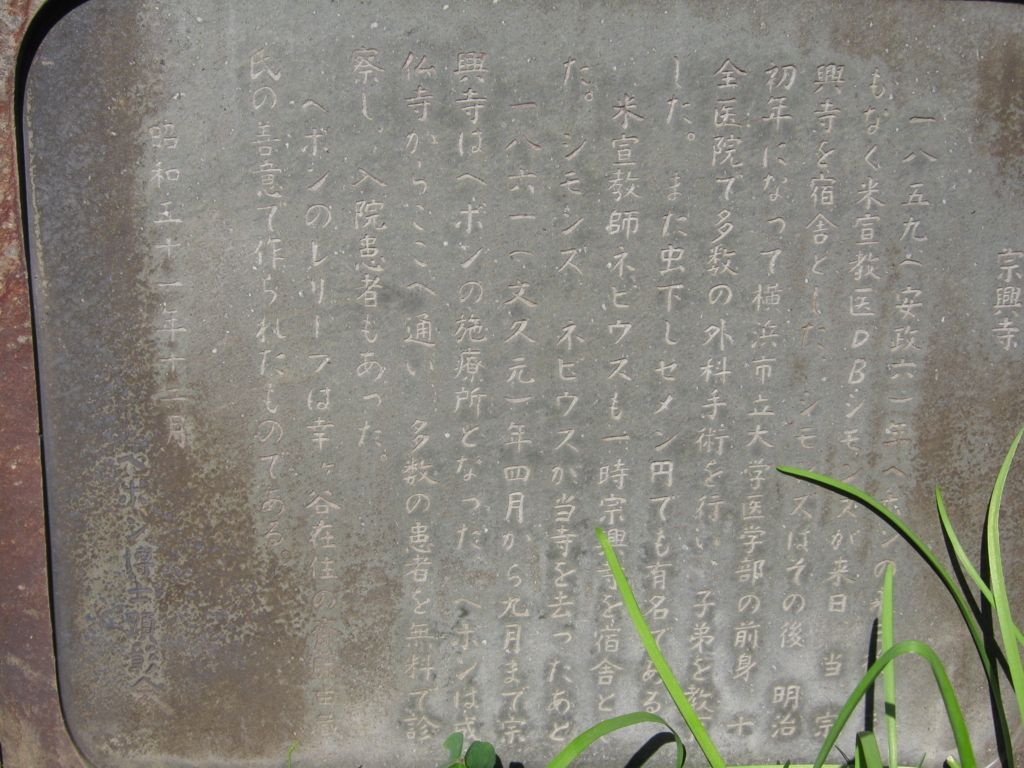 宗興寺
一八五九(安政六)年ヘボンの
もなく米宣教医DBシモンズが来日 当 宗
興寺を宿舎とした。シモ ズはその後 明治
初年になって横浜市立大学医学部の前身 十
全医院で多数の外科手術を行い、子弟を教
した。また虫下しセメン円でも有名である
米宣教師ネヒウスも一時宗興寺を宿舎と
た。シモンズ ネヒウスが当寺を去ったあと
一八六一(文久元)年四月から九月まで宗
興寺はヘボンの施療所となった。ヘボンは成
仏寺からここへ通い、多数の患者を無料で診
察し、入院患者もあった。
ヘボンのレリーフは幸ヶ谷在住の
氏の善意で作られたものである
昭和五十一年十二月
ヘボン博士 会